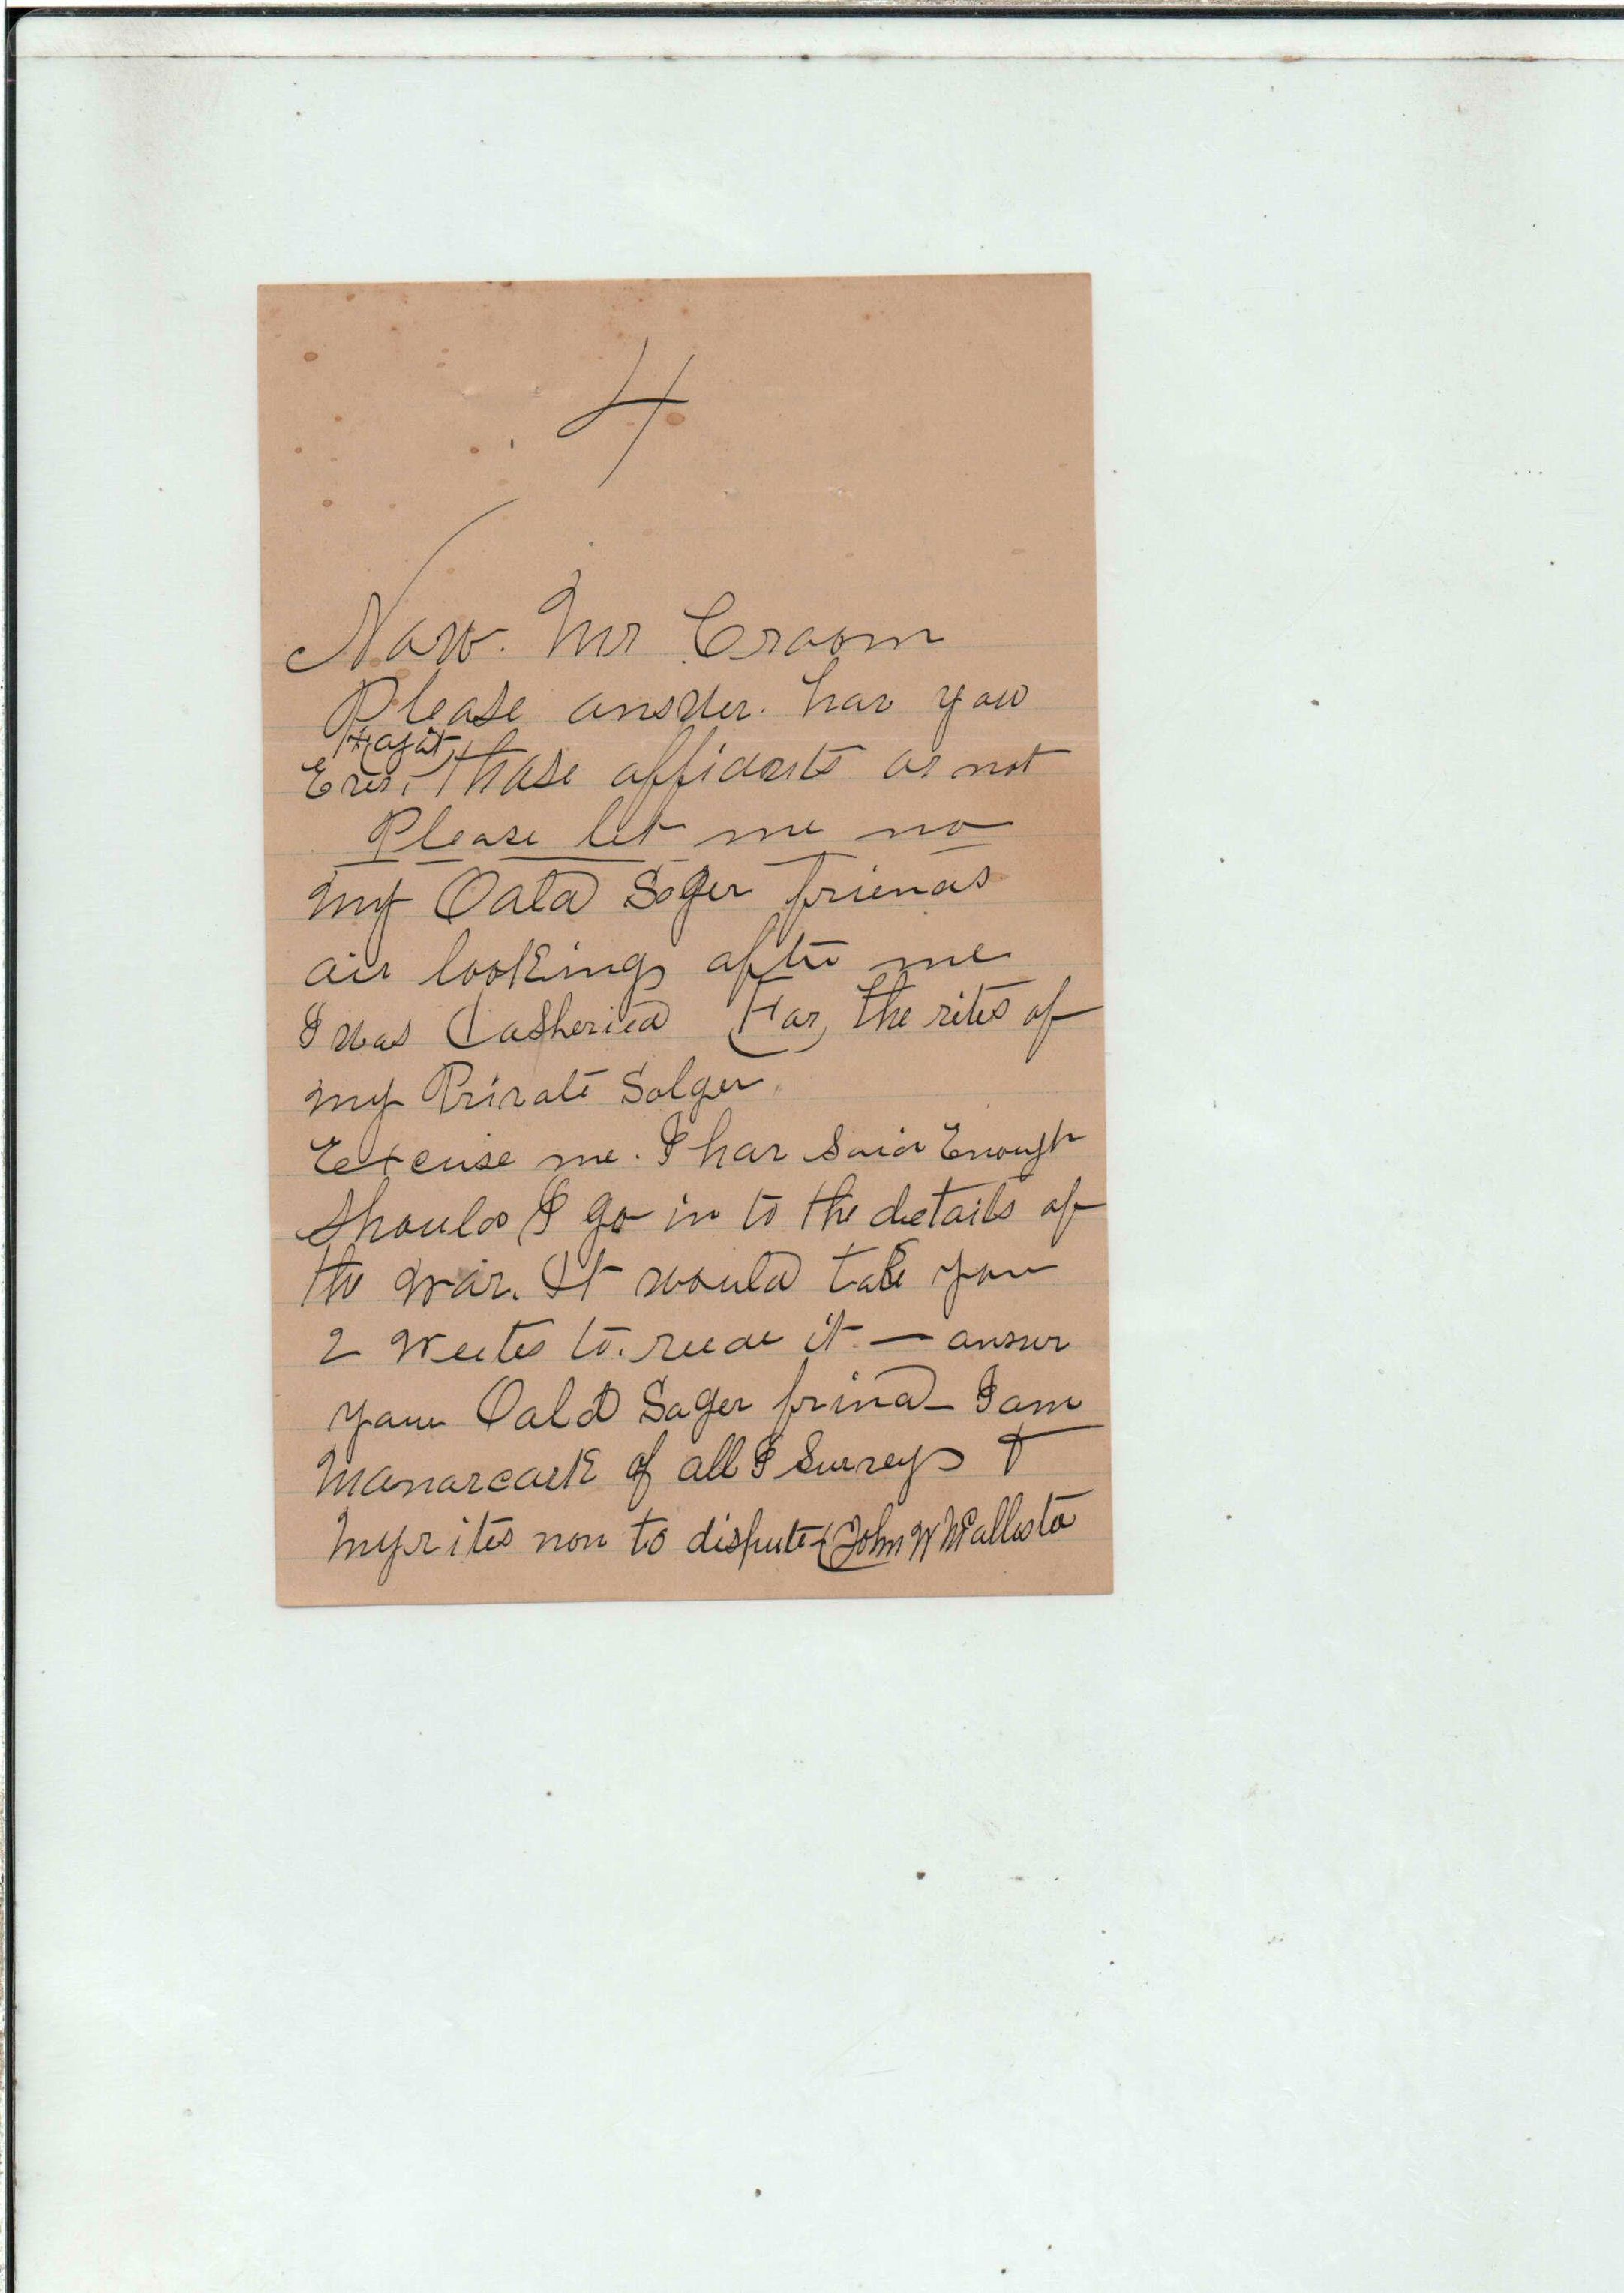 4
Now. Mr Croom
Please answer. hav you
Ever, those affidavits or not
Please let me no
my Oald Soger friends
air looking after me
I was Casheried For the rites of
my Private Solger.
Excuse me. I hav said Enough
Should I go in to the details of
the war. It would take you
2 Weeks to. reede it — answr
your Oald Soger frind — I am
Manarcark of all I Survey &
My rites non to dispute John W McAllister